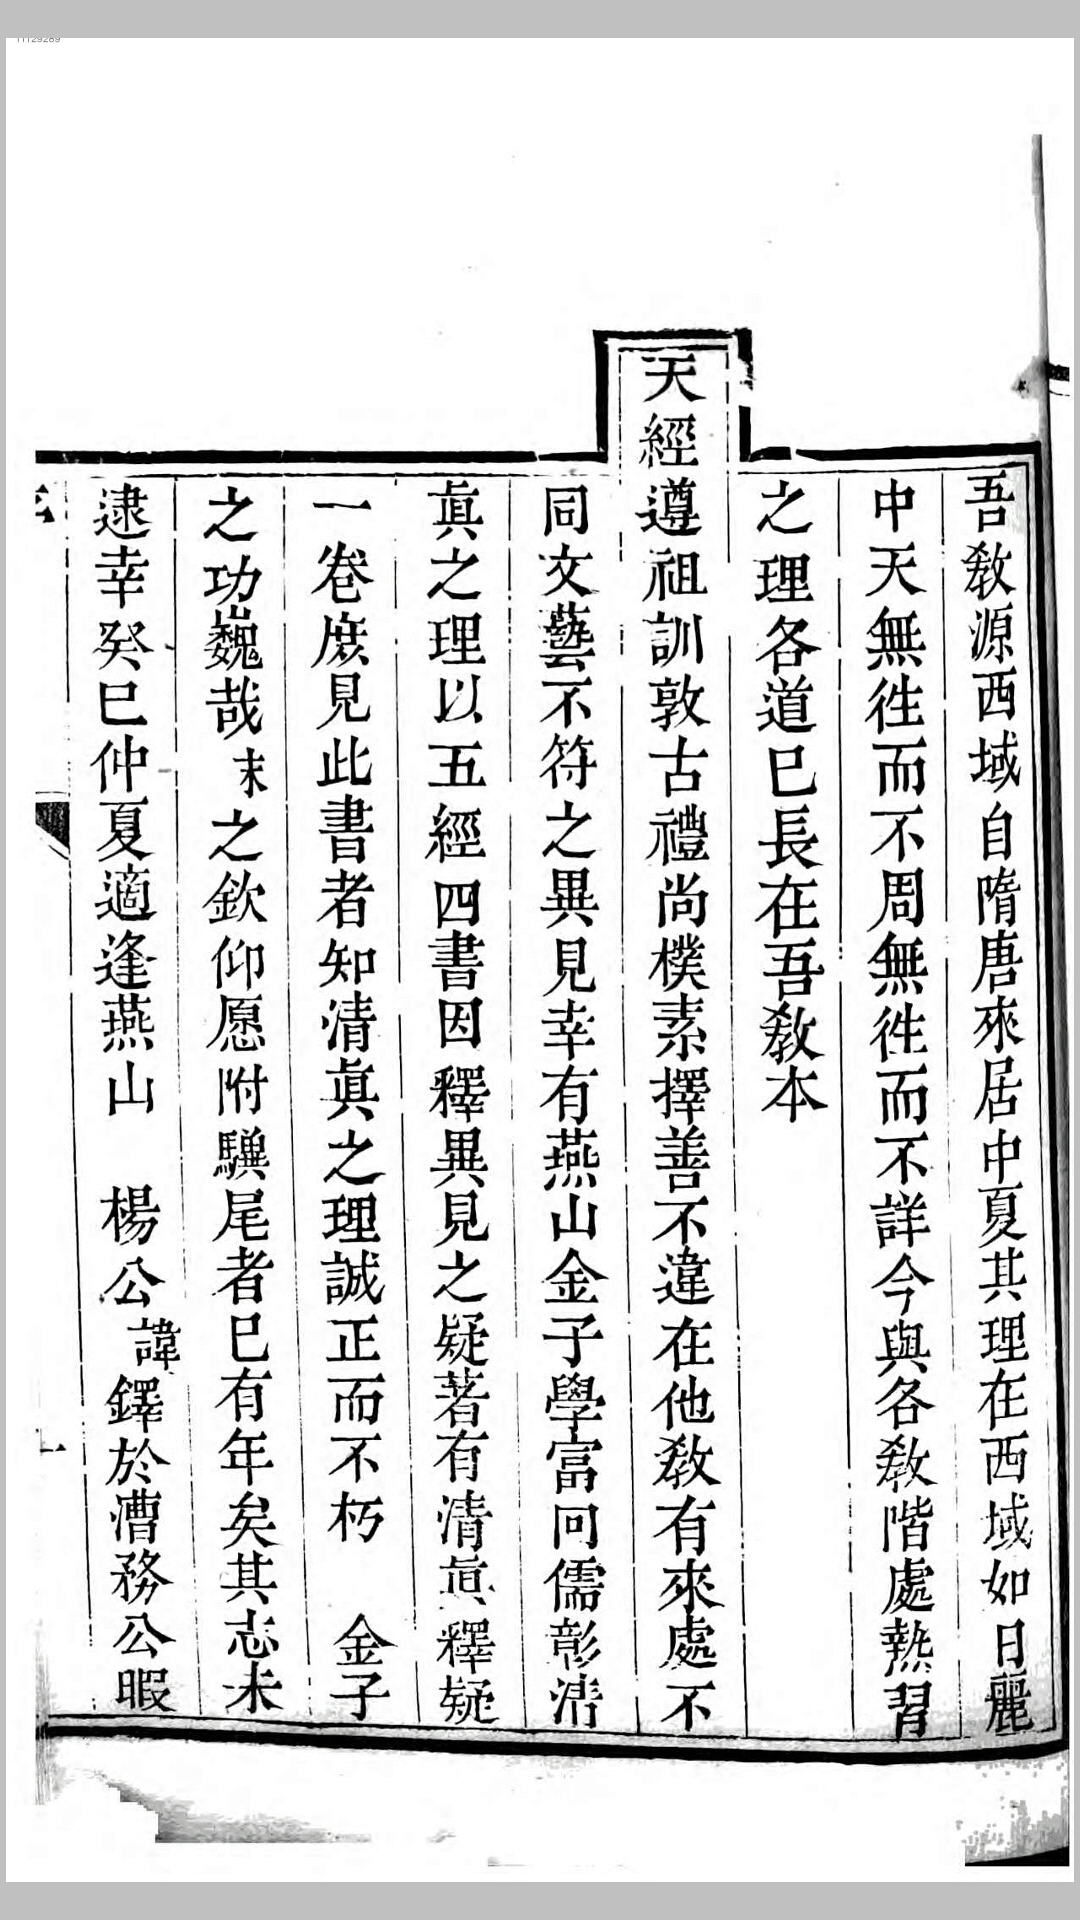 吾教源西域自隋唐來居中夏其理在西域如日麗
中天無徃而不周無徃而不詳今與各教階處熱習
之理各道已長在吾教本
天經遵祖訓敦古禮尚樸素擇善不違在他教有來處不
同文藝不符之異見幸有燕山金子學富同儒彰清
眞之理以五經四書因釋異見之疑著有清眞釋疑
一卷庶見此書者知清眞之理誠正而不朽　金子
之功巍哉末之欽仰愿附驥尾者已有年矣其志未
逮幸癸巳仲夏適逢燕山　楊公諱鐸於漕務公暇